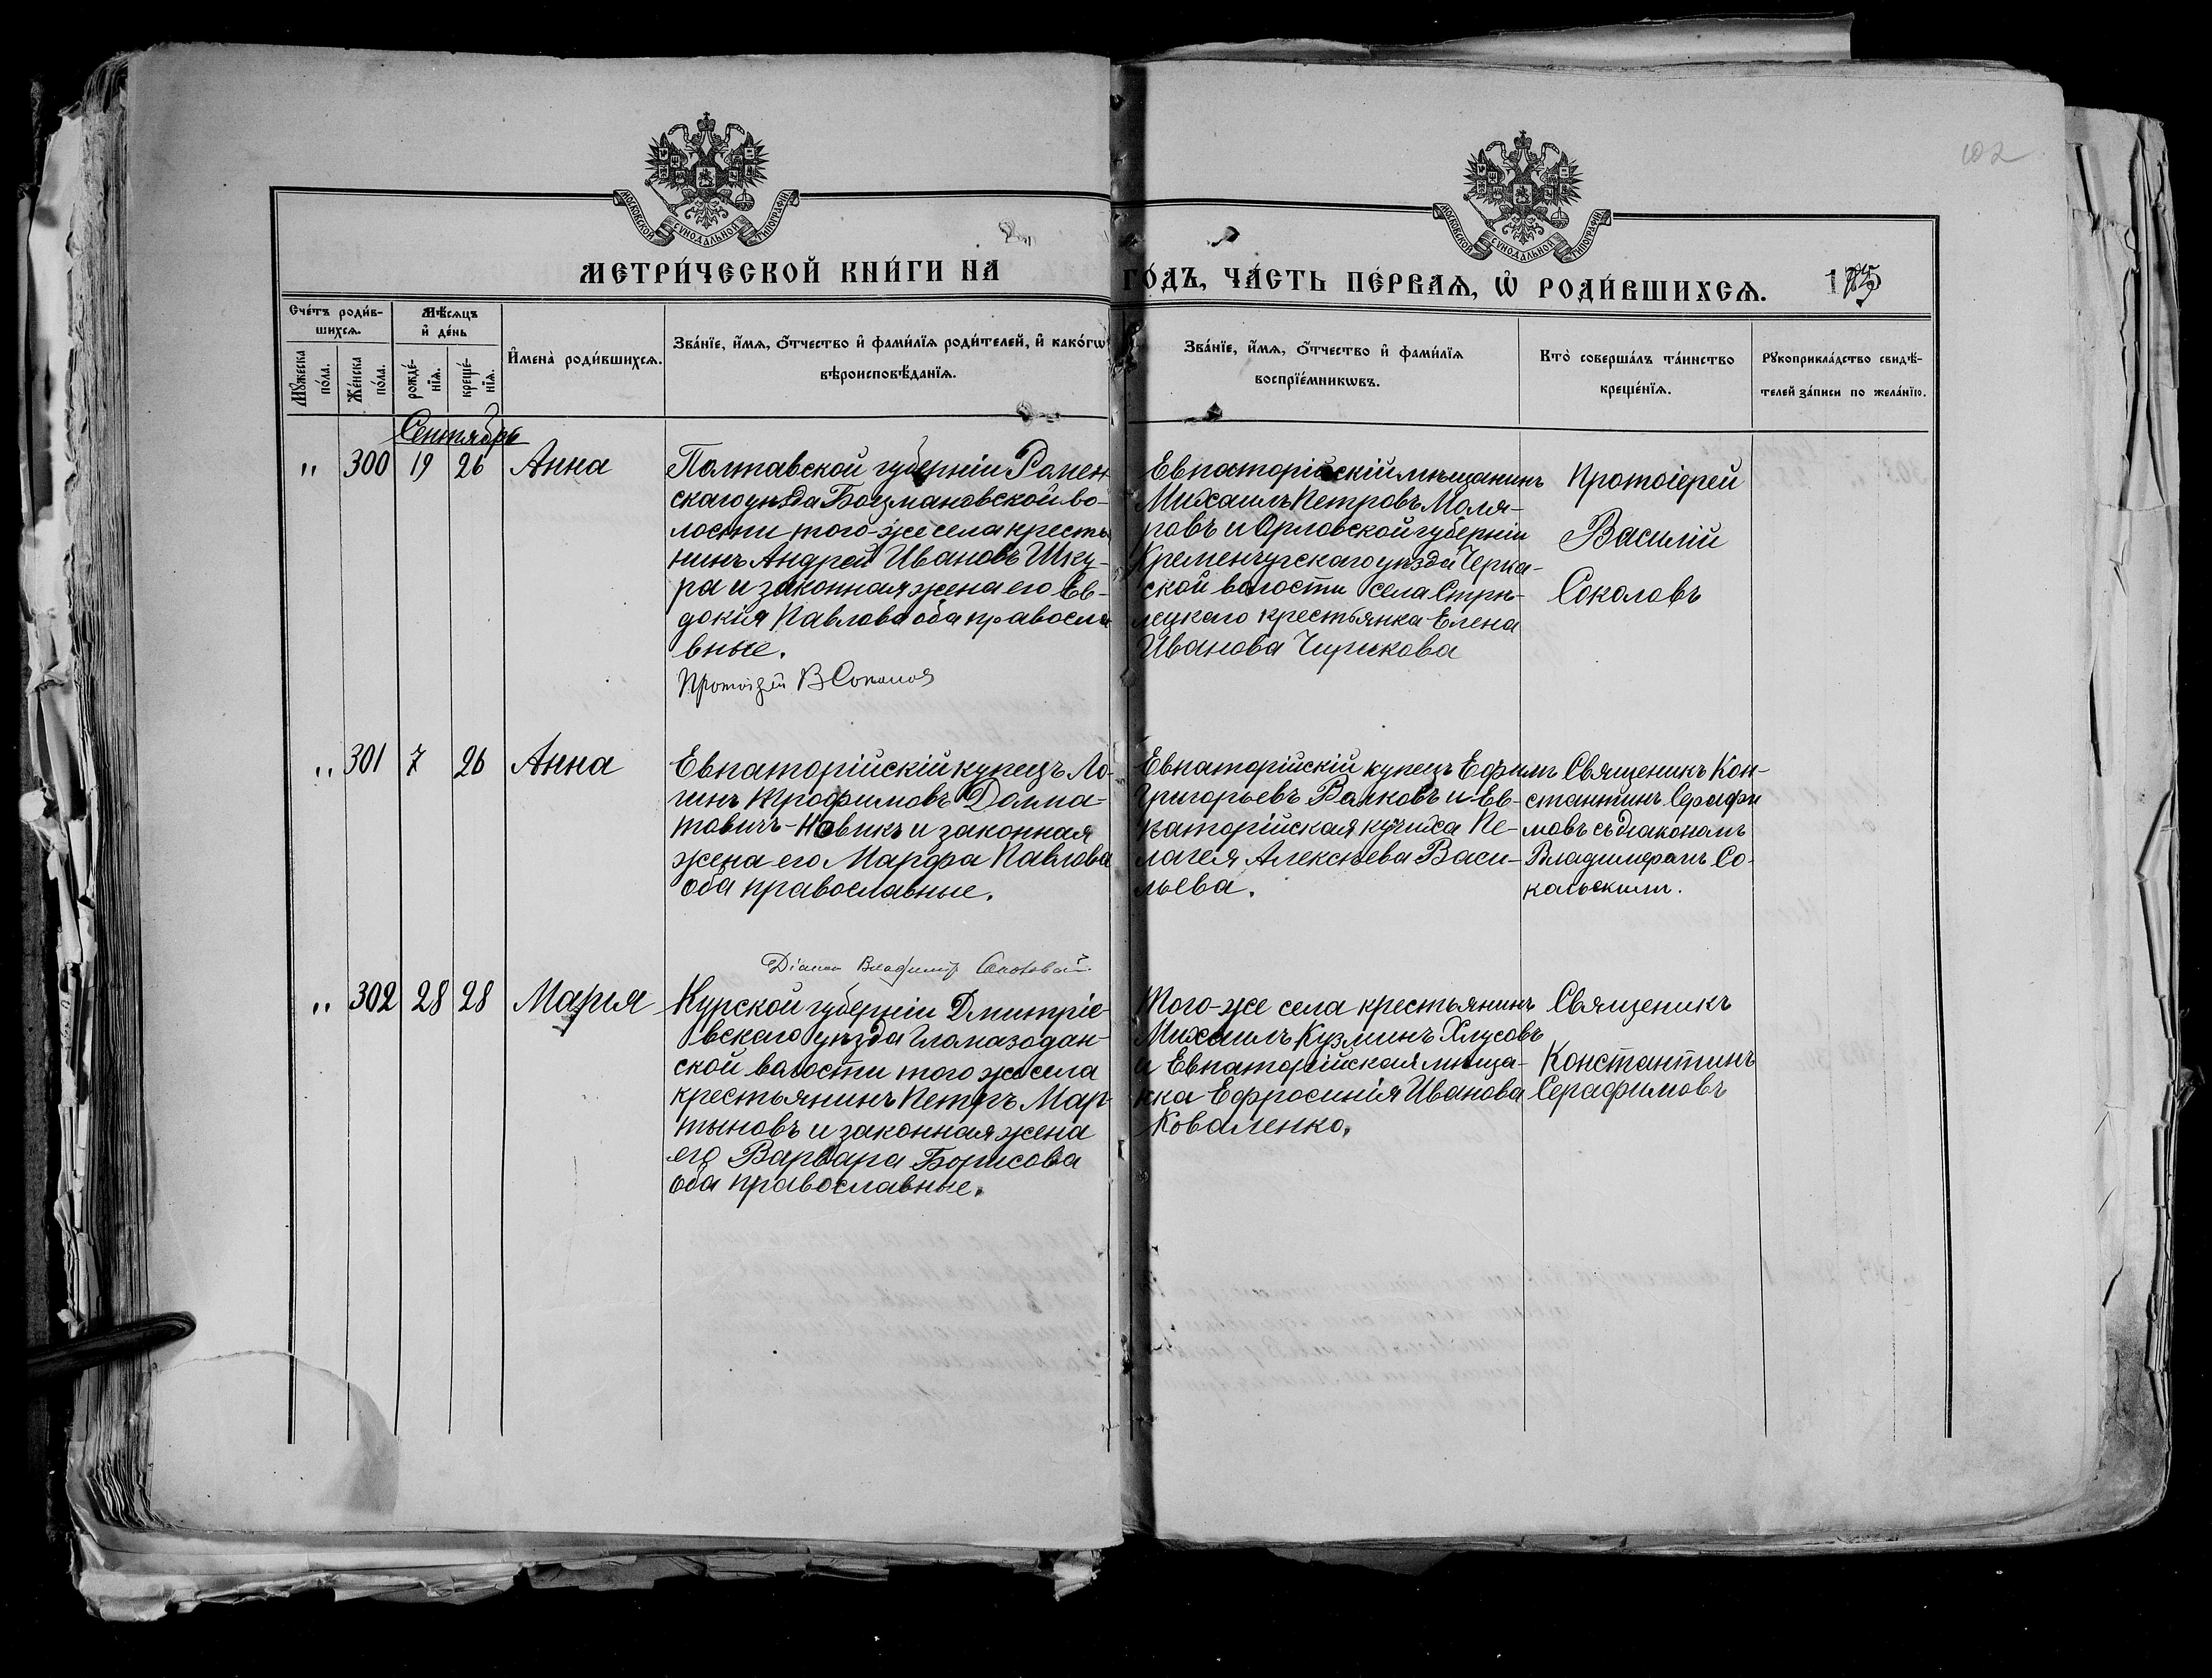 102
МОСКОВСКОЙ СѴНОДАЛЬНОЙ ТИПОГРАФІИ
МОСКОВСКОЙ СѴНОДАЛЬНОЙ ТИПОГРАФІИ
МЕТРИ́ЧЕСКОЙ КНИ́ГИ НА
ГО́ДЪ, ЧА́СТЬ ПЕ́РВАѦ, Ѡ҆ РОДИ́ВШИХСѦ.
Сче́тъ роди́в-
шихсѧ.
Мꙋ́жеска
по́ла.
Же́нска
по́ла.
Мѣ́сѧцъ
и҆ де́нь
рожде́-
нїѧ.
креще́-
нїѧ.
И҆мена̀ роди́вшихсѧ.
Зва́нїе, и҆́мѧ, ѻ҆́тчество и҆ фами́лїѧ роди́телей, и҆ како́гѡ
вѣроисповѣ́данїѧ.
Зва́нїе, и҆́мѧ, ѻ҆́тчество и҆ фами́лїѧ
воспрїе́мникѡвъ.
Кто̀ соверша́лъ та́инство
креще́нїѧ.
Рꙋкоприкла́дство свидѣ́-
телей за́писи по жела́нїю.
Сентябрь
" 300 19 26 Анна
Полтавской губерніи Ромен-
скаго уѣзда
во-
лости того-же села крестья
нинъ Андрей Ивановъ Шку-
ра и законная жена его Ев-
докія Павлова оба правосла
вные.
Протоіерей В Соколов
Евпаторійскій мѣщанинъ
Михаилъ Петровъ Моля-
ровъ и Орловской губерніи
Кременчугскаго уѣзда Черка-
ской волости села Стрѣ-
лецкаго крестьянка Елена
Иванова Чирикова
Протоіерей
Василій
Соколовъ
" 301 7 26 Анна
Евпаторійскій купецъ Ло-
гинъ Трофимовъ Долма-
товичъ-Новикъ и законная
жена его Марфа Павлова
оба православные.
Евпаторійскій купецъ Ефимъ
Григорьевъ Волковъ и Ев-
паторійская купчиха Пе-
лагея Алексѣева Васи-
льева.
Священикъ Кон-
стантинъ Серафи
мовъ съ діакономъ
Владимеромъ Со-
кольскимъ.
Діакон Владимір
" 302 28 28 Марія
Курской губерніи Дмитріе-
вскаго уѣзда Гламаздин-
ской волости того же села
крестьянинъ Петръ Мар-
тыновъ и законная жена
его Варвара Борисова
оба православные.
Того-же села крестьянинъ
Михаилъ Кузминъ Хлусовъ
и Евпаторійская мѣща-
нка Ефросинія Иванова
Коваленко.
Священикъ
Константинъ
Серафимовъ